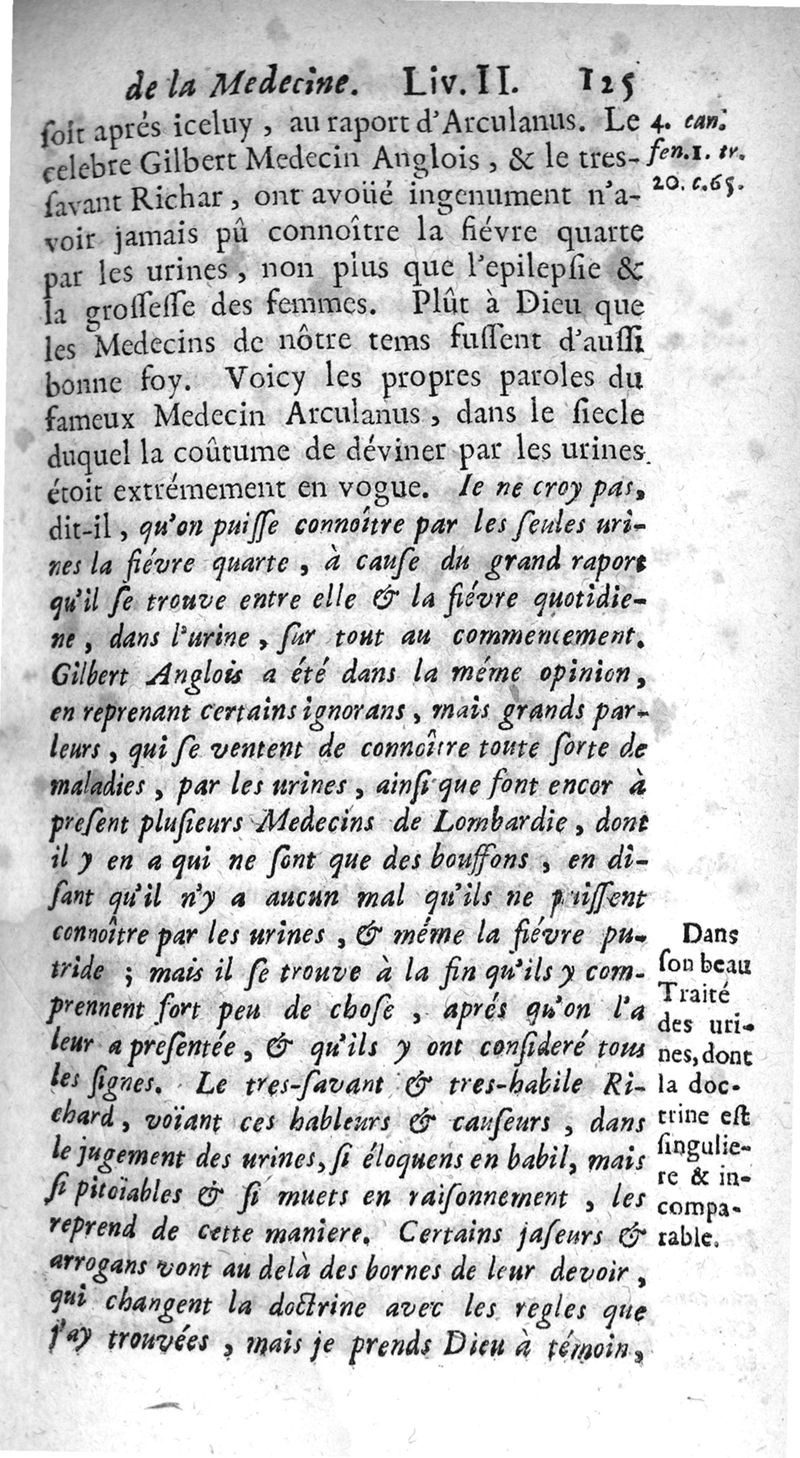 de la Medecine. Liv. II. 125
ſoit aprés iceluy, au raport d'Arculanus. Le
celebre Gilbert Medecin Anglois, & le tres-
ſavant Richar, ont avoüé ingenument n'a-
voir jamais pû connoître la fiévre quarte
par les urines, non plus que l'epilepſie &
la groſſeſſe des femmes. Plût à Dieu que
les Medecins de nôtre tems fuſſent d'auſſi
bonne foy. Voicy les propres paroles du
fameux Medecin Arculanus, dans le ſiecle
duquel la coûtume de déviner par les urines
étoit extrémement en vogue. Ie ne croy pas,
dit-il, qu'on puiſſe connoître par les ſeules uri-
nes la fiévre quarte, à cauſe du grand raport
qu'il ſe trouve entre elle & la fiévre quotidie-
ne, dans l'urine, ſur tout au commencement.
Gilbert Anglois a été dans la méme opinion,
en reprenant certains ignorans, mais grands par-
leurs, qui ſe ventent de connoître toute ſorte de
maladies, par les urines, ainſi que font encor à
preſent pluſieurs Medecins de Lombardie, dont
il y en a qui ne ſont que des bouffons, en di-
ſant qu'il n'y a aucun mal qu'ils ne puiſſent
connoître par les urines, & méme la fiévre pu-
tride; mais il ſe trouve à la fin qu'ils y com-
prennent fort peu de choſe, aprés qu'on l'a
leur a preſentée, & qu'ils y ont conſideré tous
les ſignes. Le tres-ſavant & tres-habile Ri-
chard, voïant ces hableurs & cauſeurs, dans
le jugement des urines, ſi éloquens en babil, mais
ſi pitoïables & ſi muets en raiſonnement, les
reprend de cette maniere. Certains jaſeurs &
arrogans vont au delà des bornes de leur devoir,
qui changent la doctrine avec les regles que
j'ay trouvées, mais je prends Dieu à témoin,
4. can.
fen. 1. tr.
20. c. 65.
Dans
ſon beau
Traité
des uri-
nes, dont
la doc-
trine eſt
ſingulie-
re & in-
compa-
rable.